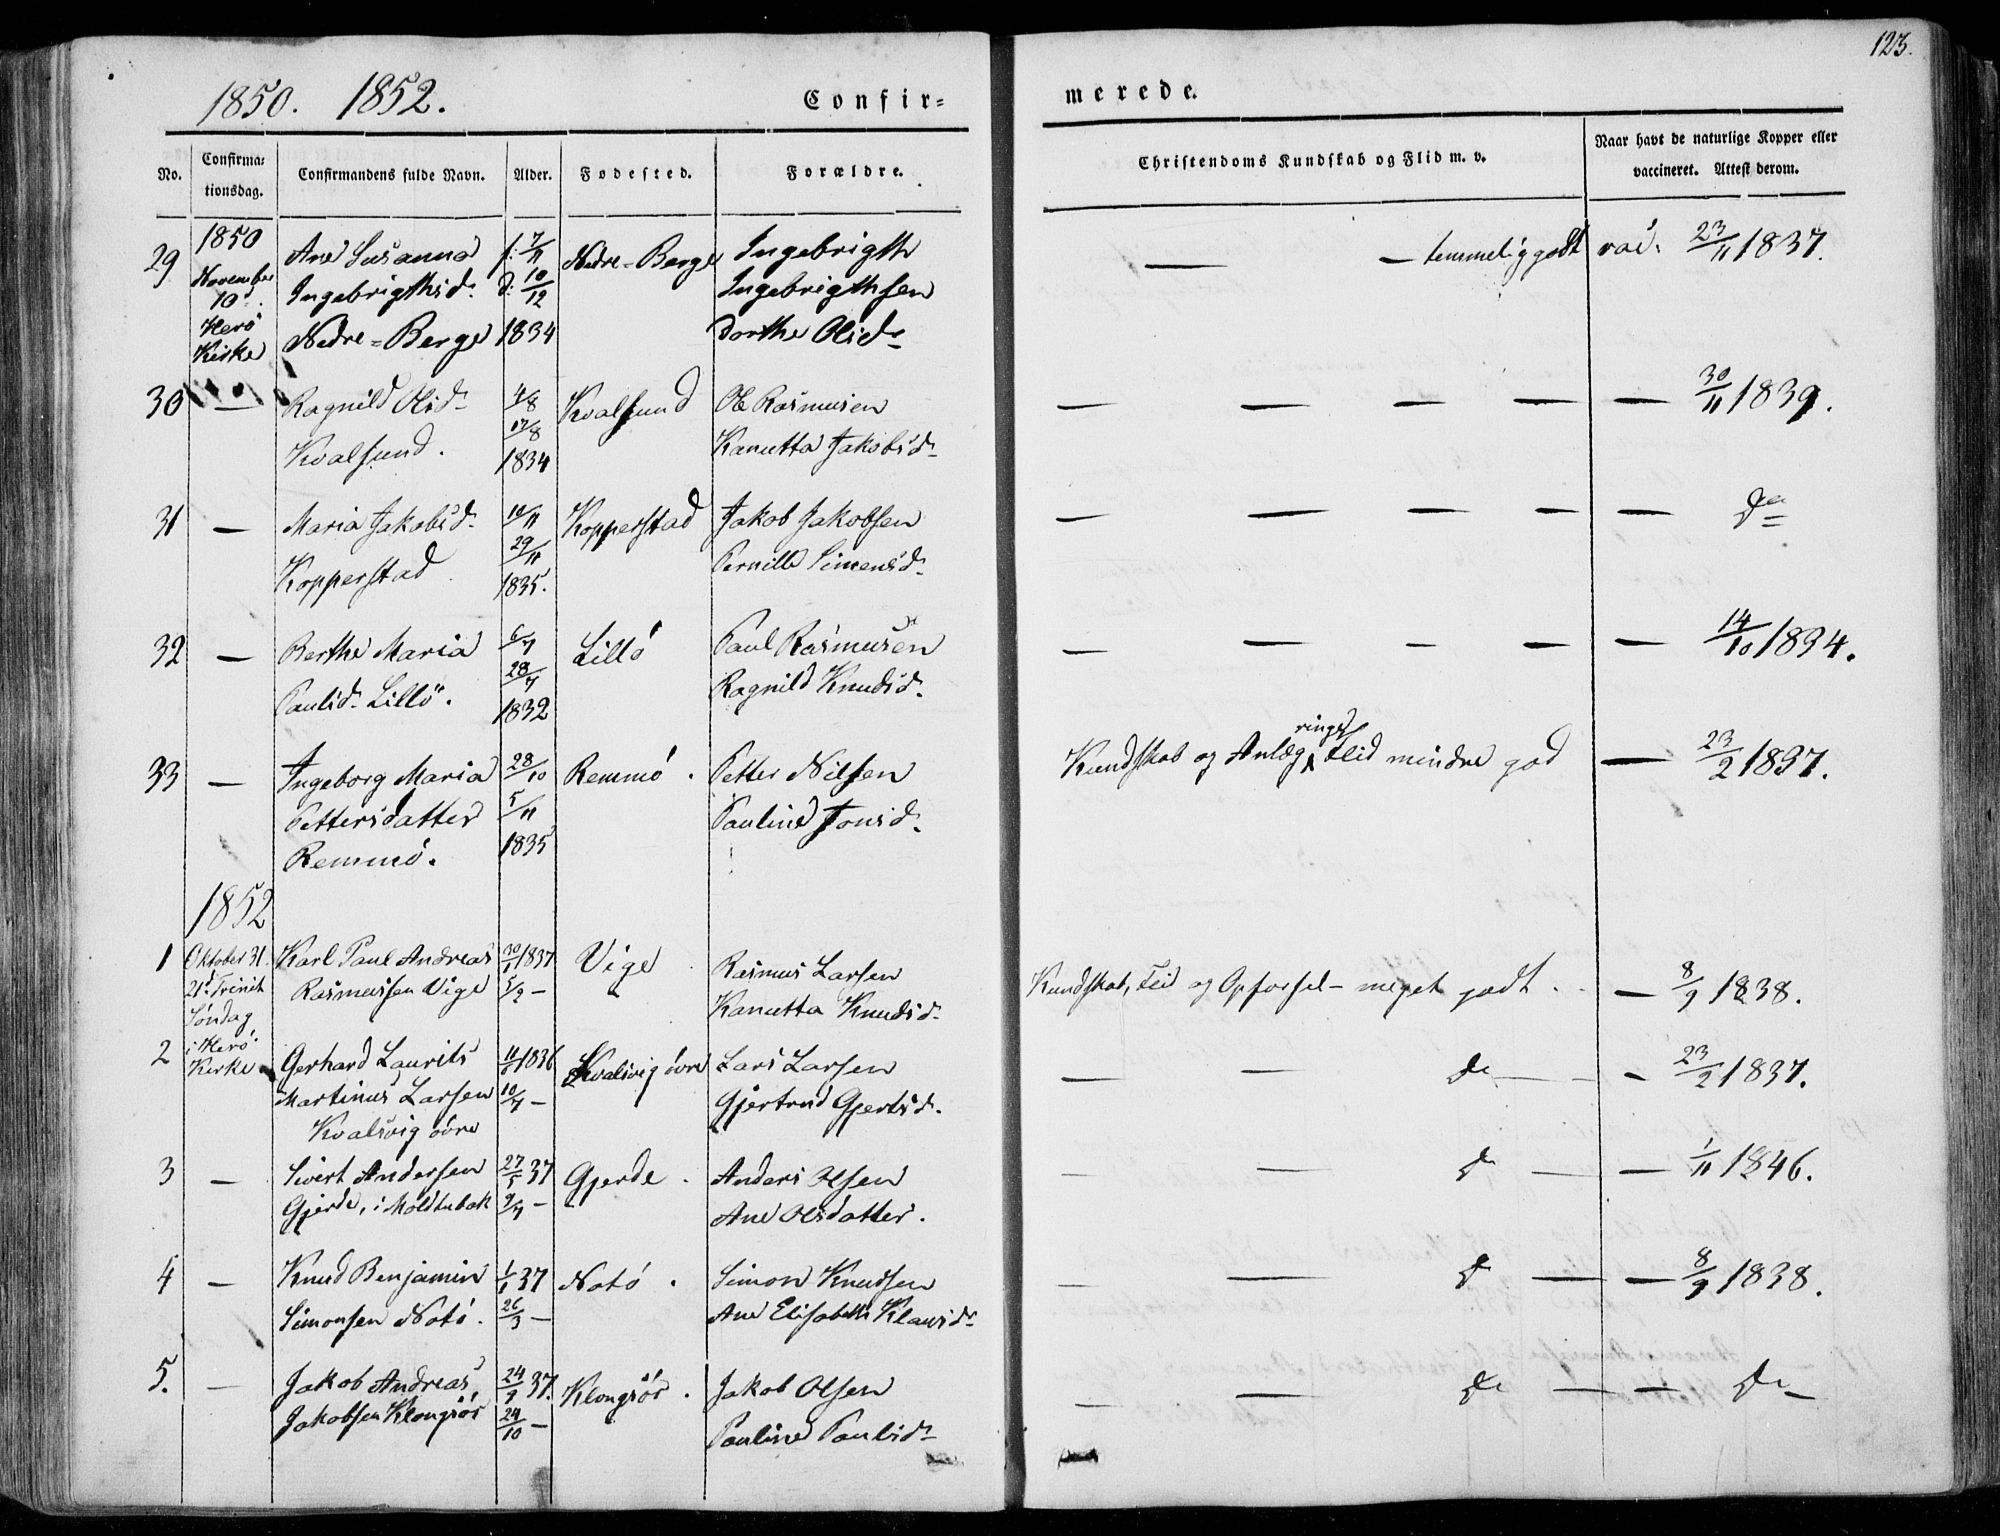 123.
1850. 1852.
Confir=
merede.
No.
Confirma=
tionsdag.
Confirmandens fulde Navn.
Alder.
Fødested.
Forældre.
Christendoms Kundskab og Flid m. v.
Naar havt de naturlige Kopper eller
vaccineret. Attest derom.
29 1850 Ane Susanna f: 7/11 Nedre=Berge Ingebrigth — — temmelig godt vac: 23/11 1837.
November Ingebrigthsd. d: 10/12 Ingebrigthsen
10. Nedre=Berge 1834 Dorthe Olsd.
Herö
Kirke
30 — Ragnild Olsd. 4/8 Kvalsund Ole Rasmusen — — — — — 30/11 1839.
Kvalsund. 17/8 Kanutta Jakobsd.
1834
31 — Maria Jakobsd. 10/11 Kopperstad Jakob Jakobsen — — — — — Do
Kopperstad 29/11 Pernille Simensd.
1835.
32 — Berthe Maria 6/7 Lillö Paul Rasmusen — — — — — 14/10 1834.
Paulsd. Lillö. 28/7 Ragnild Knudsd.
1832
33 — Ingeborg Maria 28/10 Remmö. Petter Nilsen Kundskab og Anlæg ringe, Flid mindre god — 23/2 1837.
Pettersdatter 5/11 Pauline Jonsd.
Remmö. 1835
1852
1 Oktober 31. Karl Paul Andreas 30/1 1837 Vige Rasmus Larsen Kundskab, Flid og Opførsel – meget godt. — 8/9 1838.
21d Trinit Rasmussen Vige 5/2 — Kanutta Knudsd.
Söndag
i Herö
Kirke
2 Gerhard Laurits 1836 Kvalsvig övre Lars Larsen — — Do — — 23/2 1837.
Martinus Larsen 10/7 — Gjertrud Gjertsd.
Kvalsvig övre
3 — Sivert Andersen 27/5 37 Gjerde. Anders Olsen — — Do — — 1/11 1846.
Gjerde, i Moldtubak 9/7 — Ane Olsdatter.
4 — Knud Benjamin 1/1 37 Notö. Simon Knudsen — — Do — — 8/9 1838.
Simonsen Notö. 26/3 — Ane Elisabeth Klausd.
5. — Jakob Andreas 24/9 37. Klongsör. Jakob Olsen — — Do — — Do —
Jakobsen Klongsör 24/10 — Pauline Paulsd.